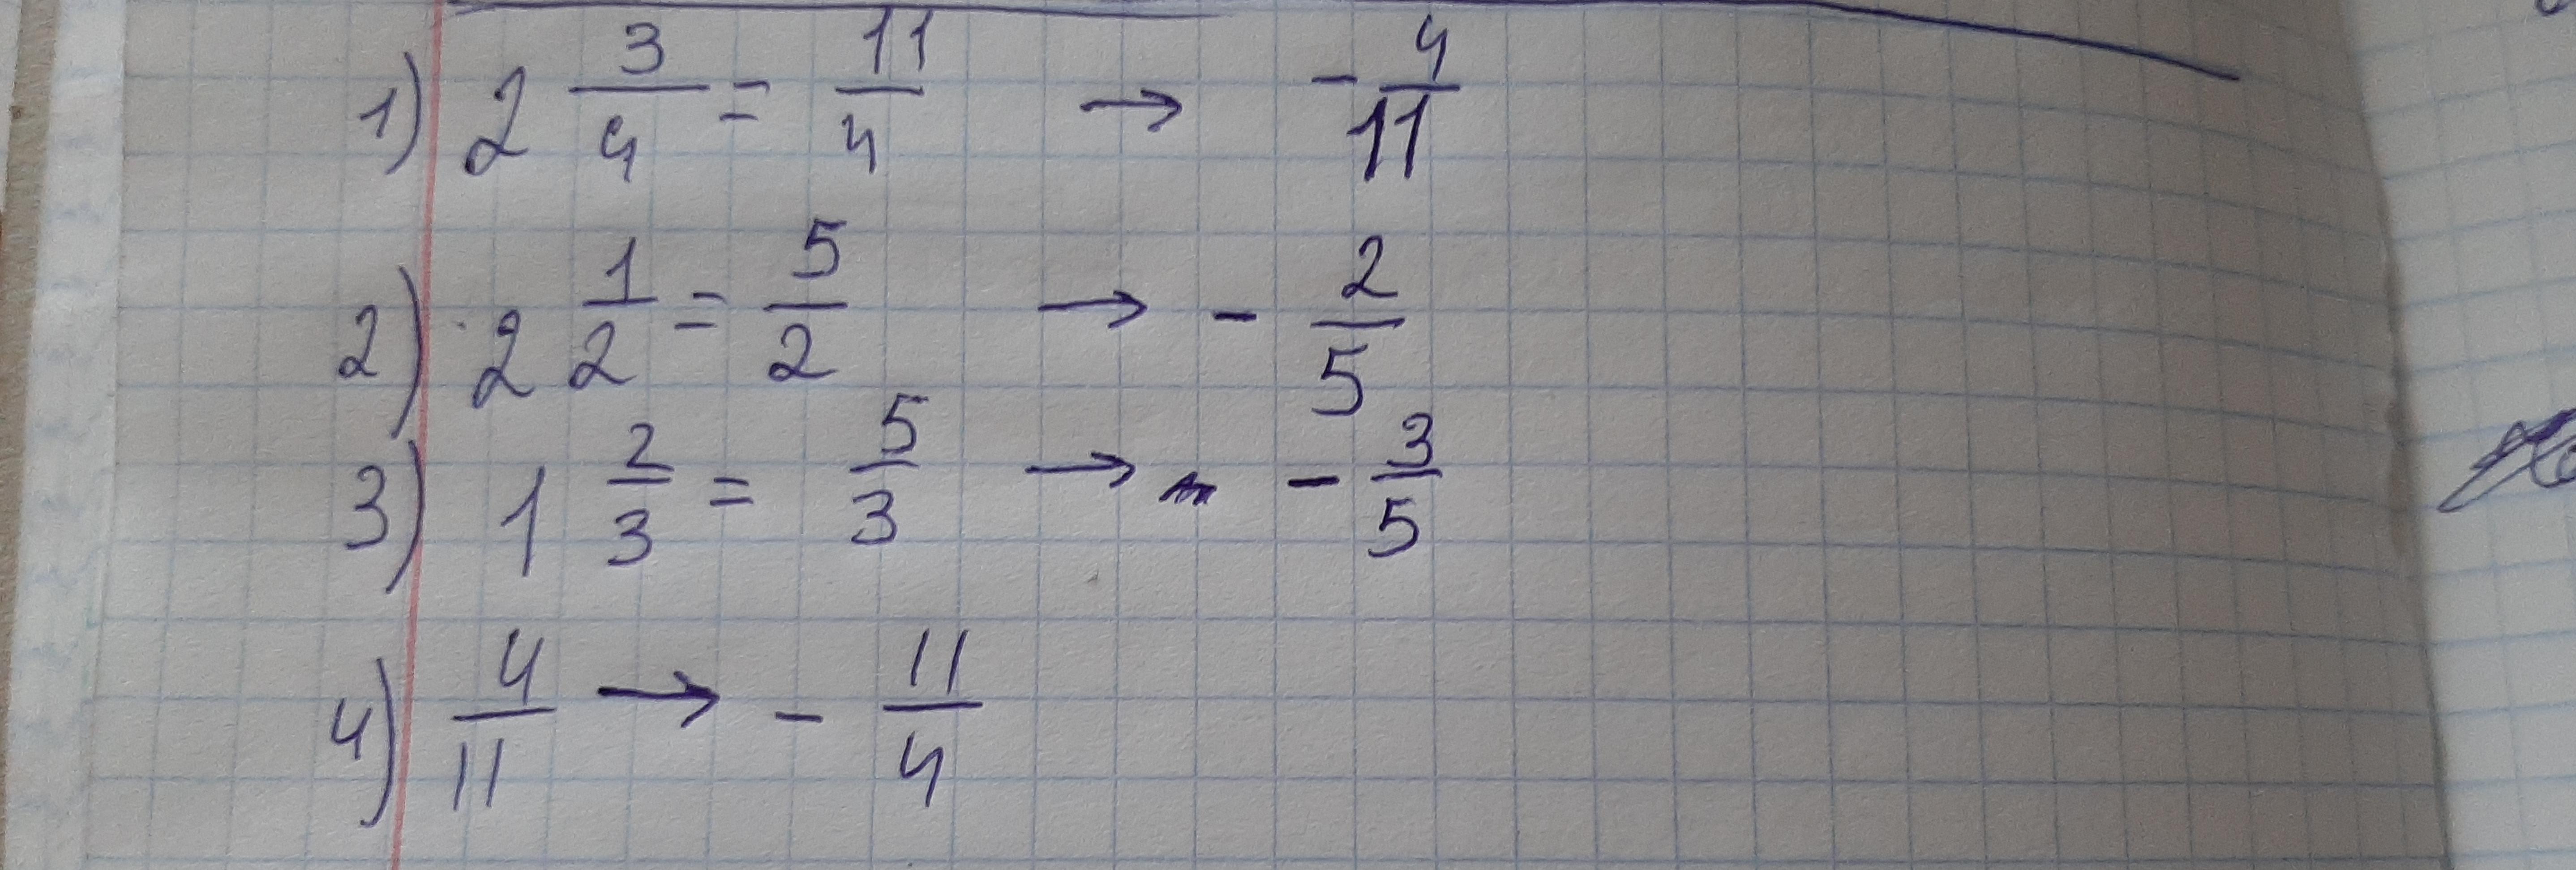 1) 2 3/4 = 11/4 → - 4/11
2) 2 1/2 = 5/2 → - 2/5
3) 1 2/3 = 5/3 → - 3/5
4) 4/11 → - 11/4